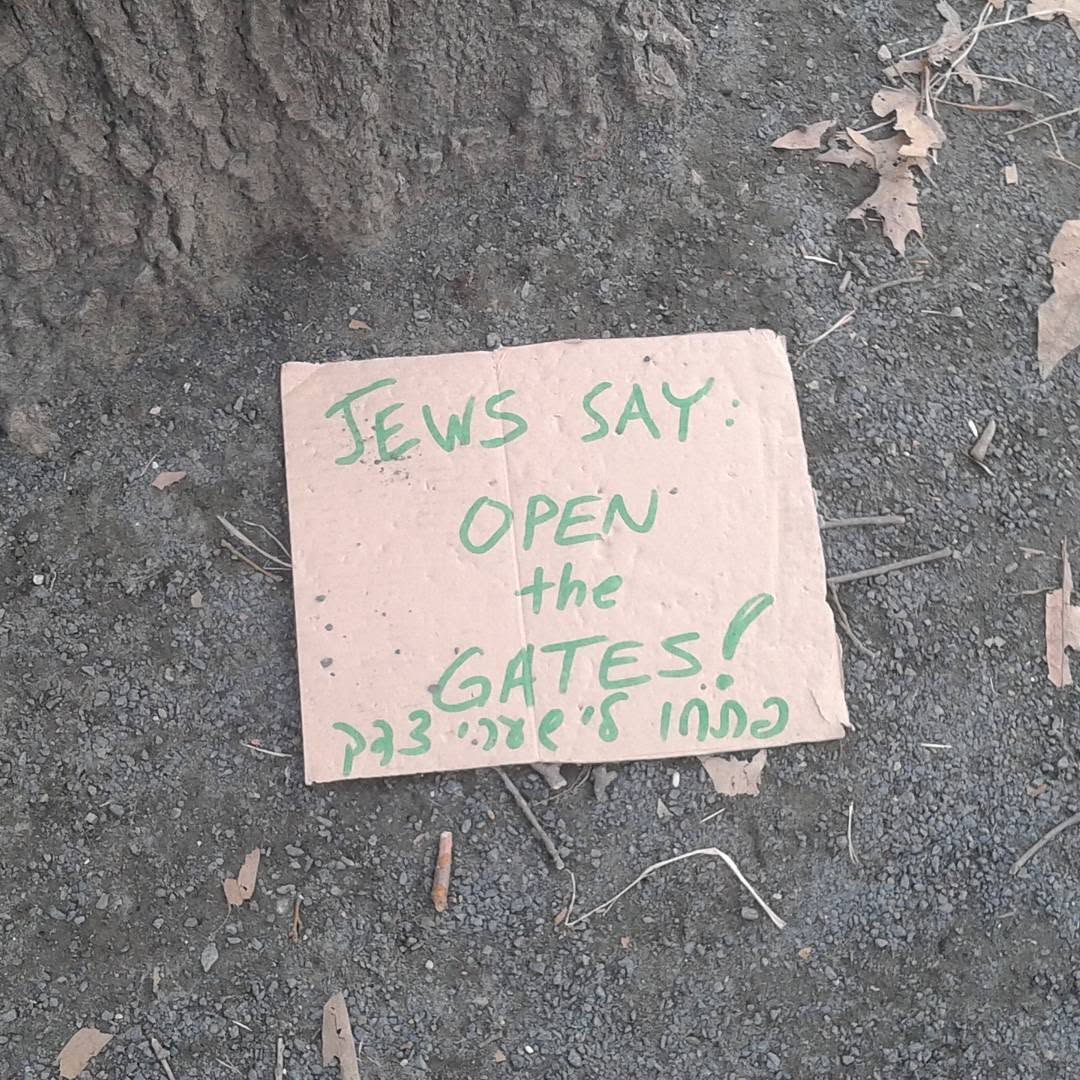 JEWS SAY:
OPEN
the
GATES!
פתחו לי שערי צדק